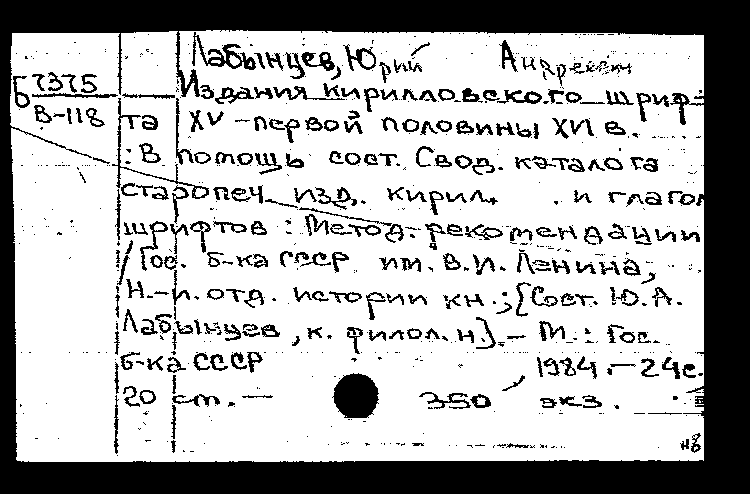 Лабынцев, Юрий Андреевич
Б 7375
В-118
Издания кирилловского шриф-
та XV - первой половины XVI в.
: В помощь сост. Свод. каталога
старопеч. изд. кирил. и глагол
шрифтов : Метод. рекомендации
/ Гос. б-ка СССР им. В.И. Ленина,
Н.-и. отд. истории кн.; [Сост. Ю.А.
Лабынцев, к. филол. н.]. - М. : Гос.
б-ка СССР , 1984. - 24с.
20 см. - 350 экз.